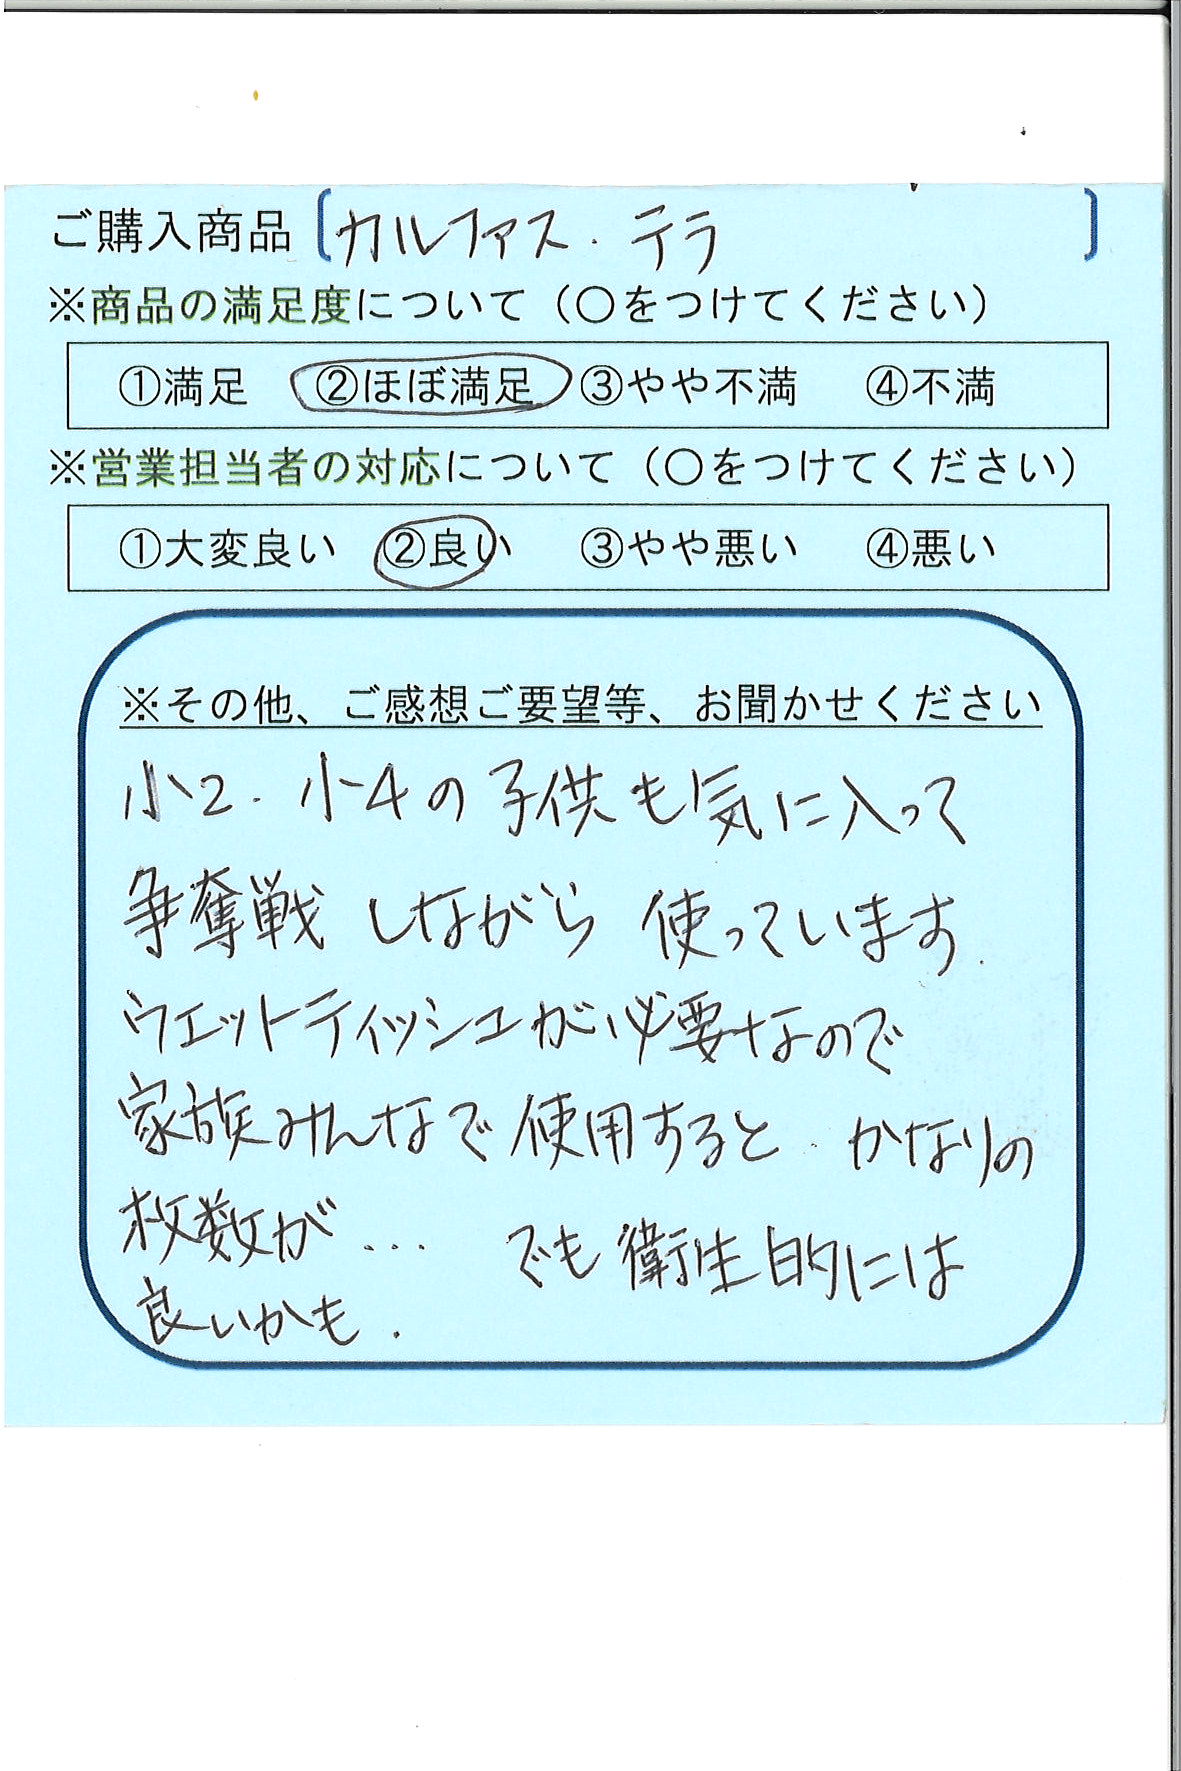 ご購入商品 [カルファス.テラ]
※商品の満足度について（○をつけてください）
①満足 ②ほぼ満足 ③やや不満 ④不満
※営業担当者の対応について（○をつけてください）
①大変良い ②良い ③やや悪い ④悪い
※その他、ご感想ご要望等、お聞かせください
小2.小4の子供も気に入って
争奪戦しながら 使っています.
ウエットティッシュが必要なので
家族みんなで使用すると.かなりの
枚数が... でも衛生的には
良いかも.